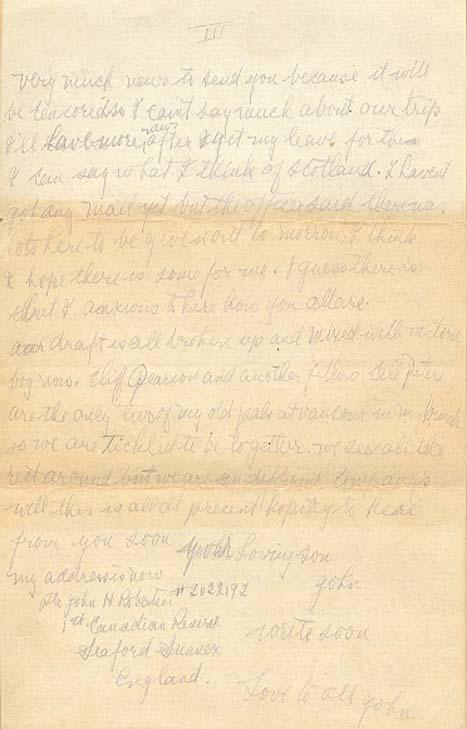 III
very much news to send you because it will
be censored so I can't say much about our trip
I'll have more news after I get my leave for then
I can say what I think of Scotland. I havent
got any mail yet but the officer said there was
lots here to be given out to morrow I think
I hope there is some for me. I guess there is
but I anxious to here how you all are.
our draft is all broken up and mixed with victoria
boy now. Cliff Pearson and another fellow call Peters
are the only two of my old pals at vancouver in my
so we are tickled to be to gather. we see all the
rest around but we are in different Companys
well this is all at present hoping to hear
from you soon your Loving son
John
my address is now
Pte John H Robertson # 2022192
1st Canadian Reserve
Seaford Sussex
England.
write soon
Love to all John